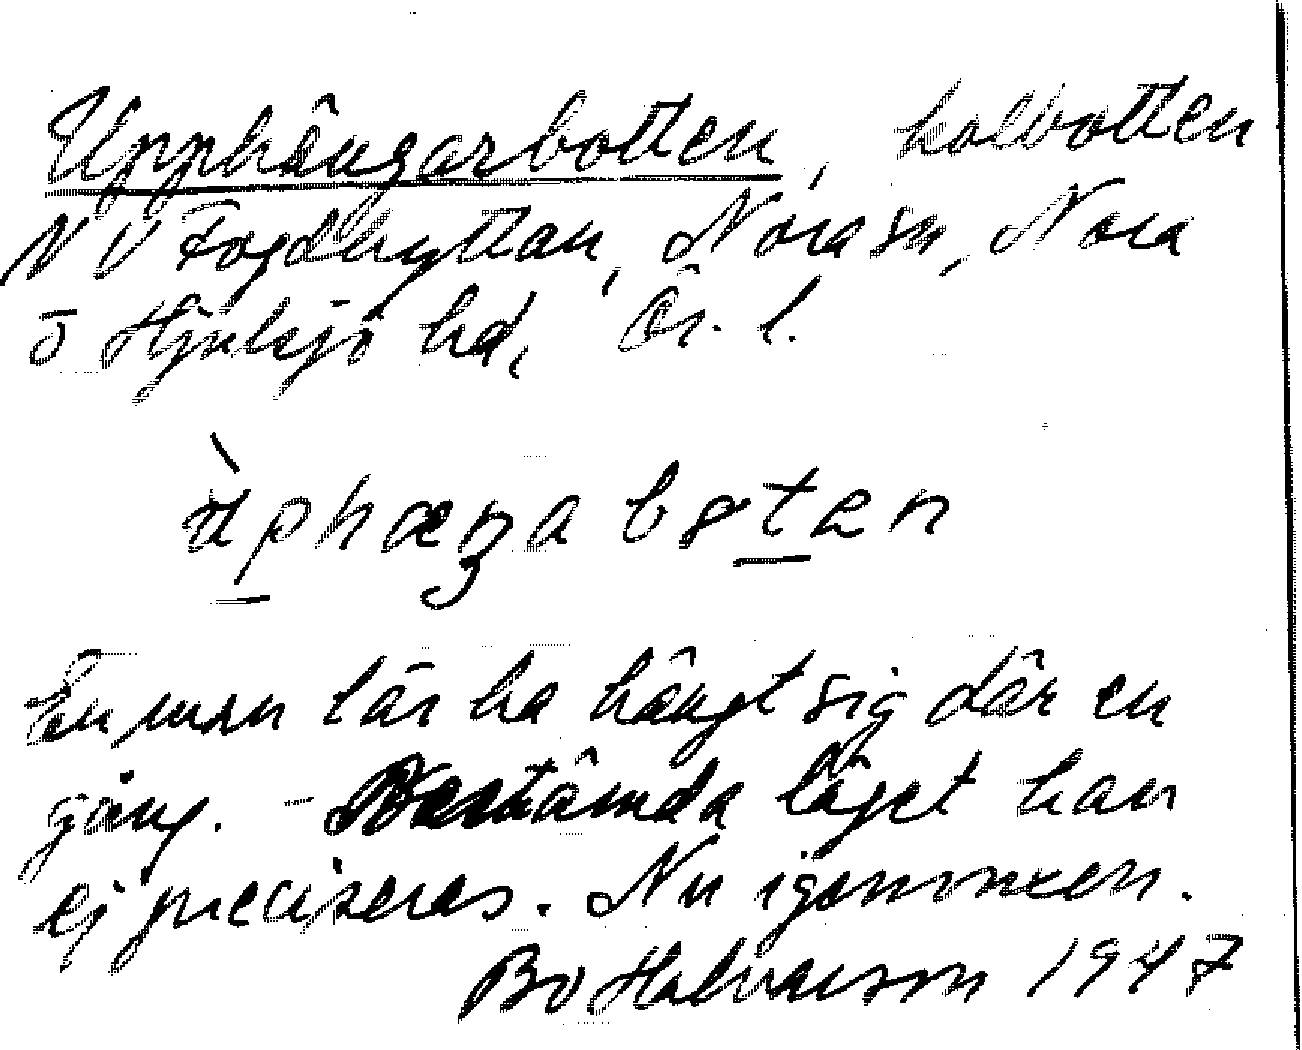 Upphängarbotten, kolbotten
NV Fogdhyttan, Nora sn, Nora
o Hjulsjö hd, Ör. l.
ùphæŋabotən
En man lär ha hängt sig där en
gång. - Bestämda läget kan
ej preciseras. Nu igenvuxen.
Bo Halvarson 1947